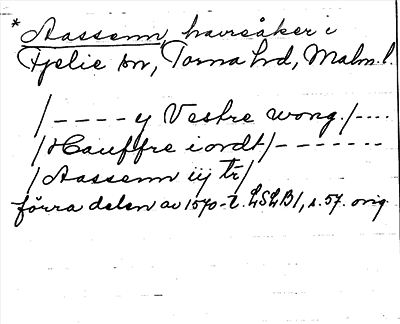 * Aassenn, havreåker i
Fjelie sn, Torna hd, Malm. l.
/---- y Vestre wong./----
/Hauffre iordt/-------
/Aassenn iij tr/
förra delen av 1570-t. LSLB1, s. 57. orig.